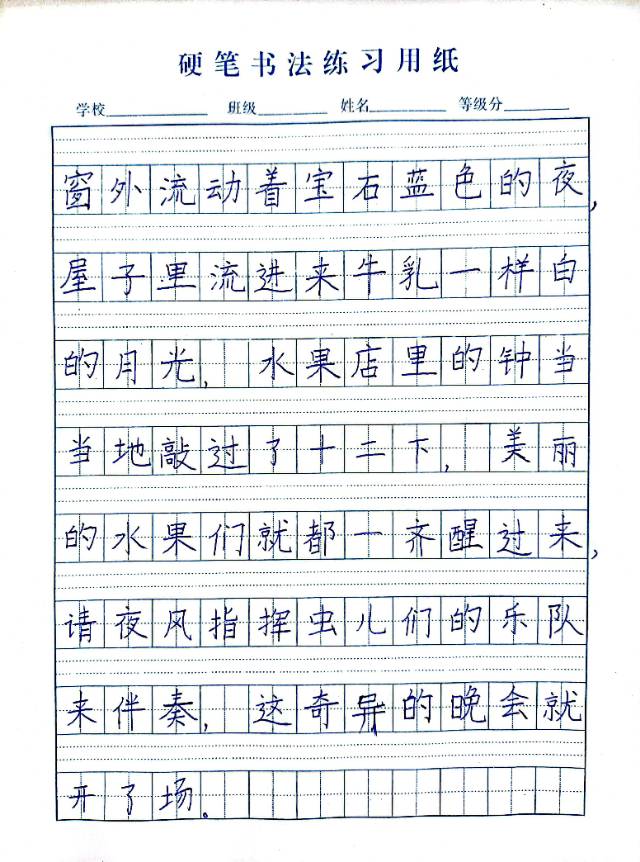 硬笔书法练习用纸
学校 班级 姓名 等级分
窗外流动着宝石蓝色的夜,
屋子里流进来牛乳一样白
的月光, 水果店里的钟当
当地敲过了十二下, 美丽
的水果们就都一齐醒过来,
请夜风指挥虫儿们的乐队
来伴奏, 这奇异的晚会就
开了场。